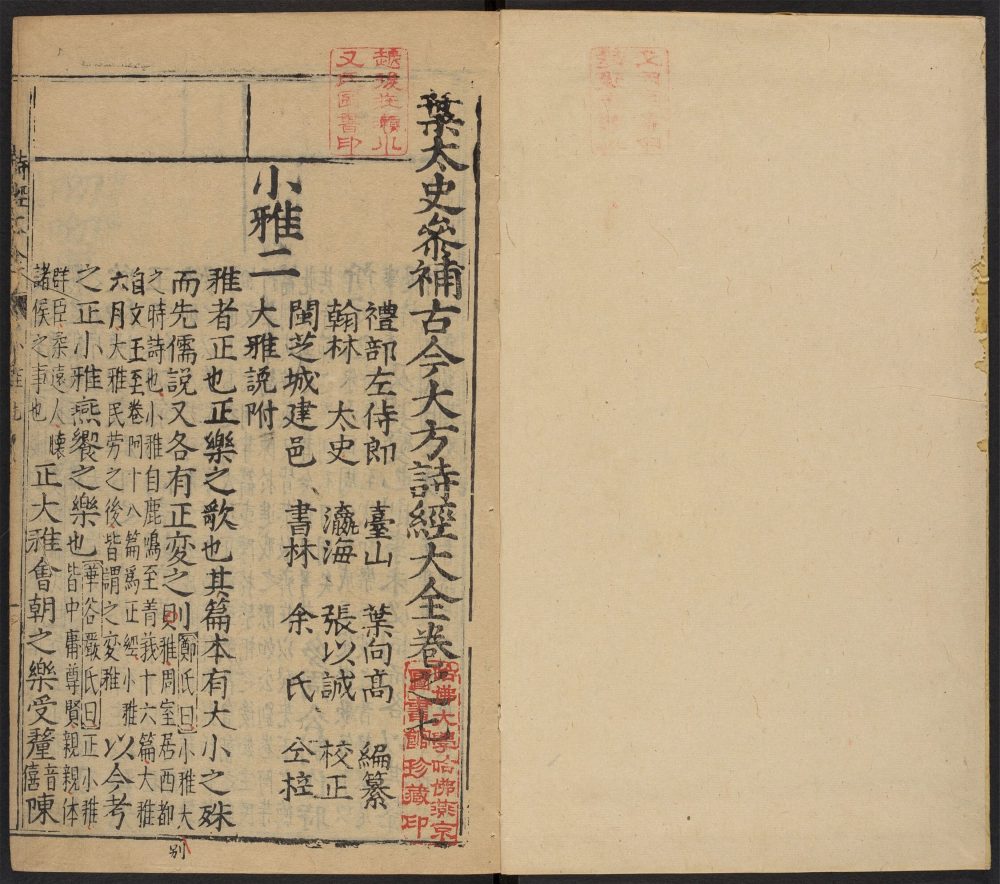 葉太史叅補古今大方詩經大全卷之七
禮部左侍郎 臺山 葉向高 編纂
翰林 太史 瀛海 張以誠 校正
閩芝城建邑 書林 余 氏 仝梓
小雅二
大雅說附
雅者正也正樂之歌也其篇本有大小之殊
而先儒說又各有正変之別
鄭氏曰小雅大
雅周室居西都
之時詩也小雅自鹿鳴至菁莪十六篇大雅
自文王至卷阿十八篇爲正經小雅
六月大雅民劳之後皆謂之変雅
以今考
之正小雅燕饗之樂也
華谷嚴氏曰正小雅
皆中庸尊賢親親体
群臣柔遠人懷
諸侯之事也
正大雅會朝之樂受釐
音
僖
陳
別
哈佛大學哈佛燕京
圖書館珍藏印